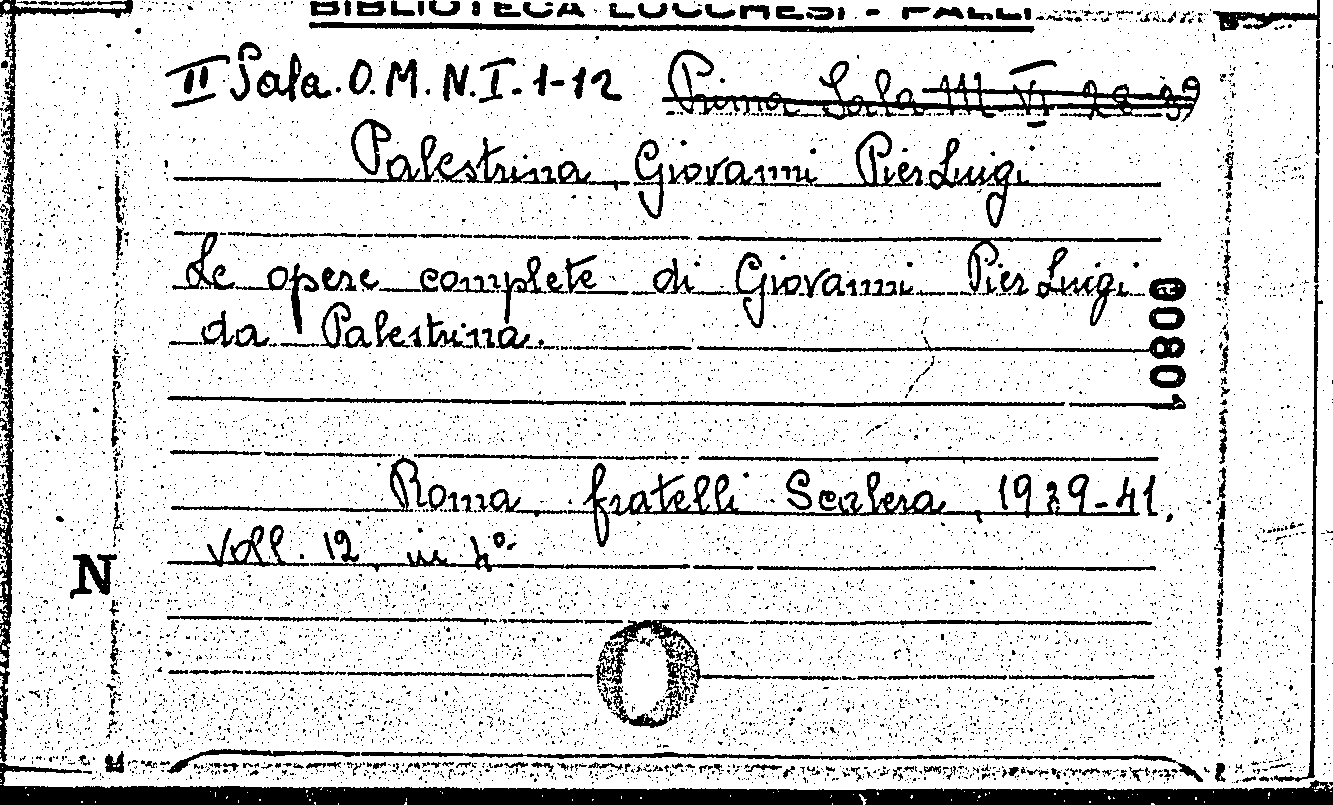 BIBLIOTECA LUCCHESI - PALLI
II Sala. O. M. N. I. 1-12 Prima Sala III VI 28-39
Palestrina, Giovanni PierLuigi
Le opere complete di Giovanni PierLuigi
da Palestrina.
00801
Roma, fratelli Scalera, 1939-41.
Voll. 12, in 4°
N